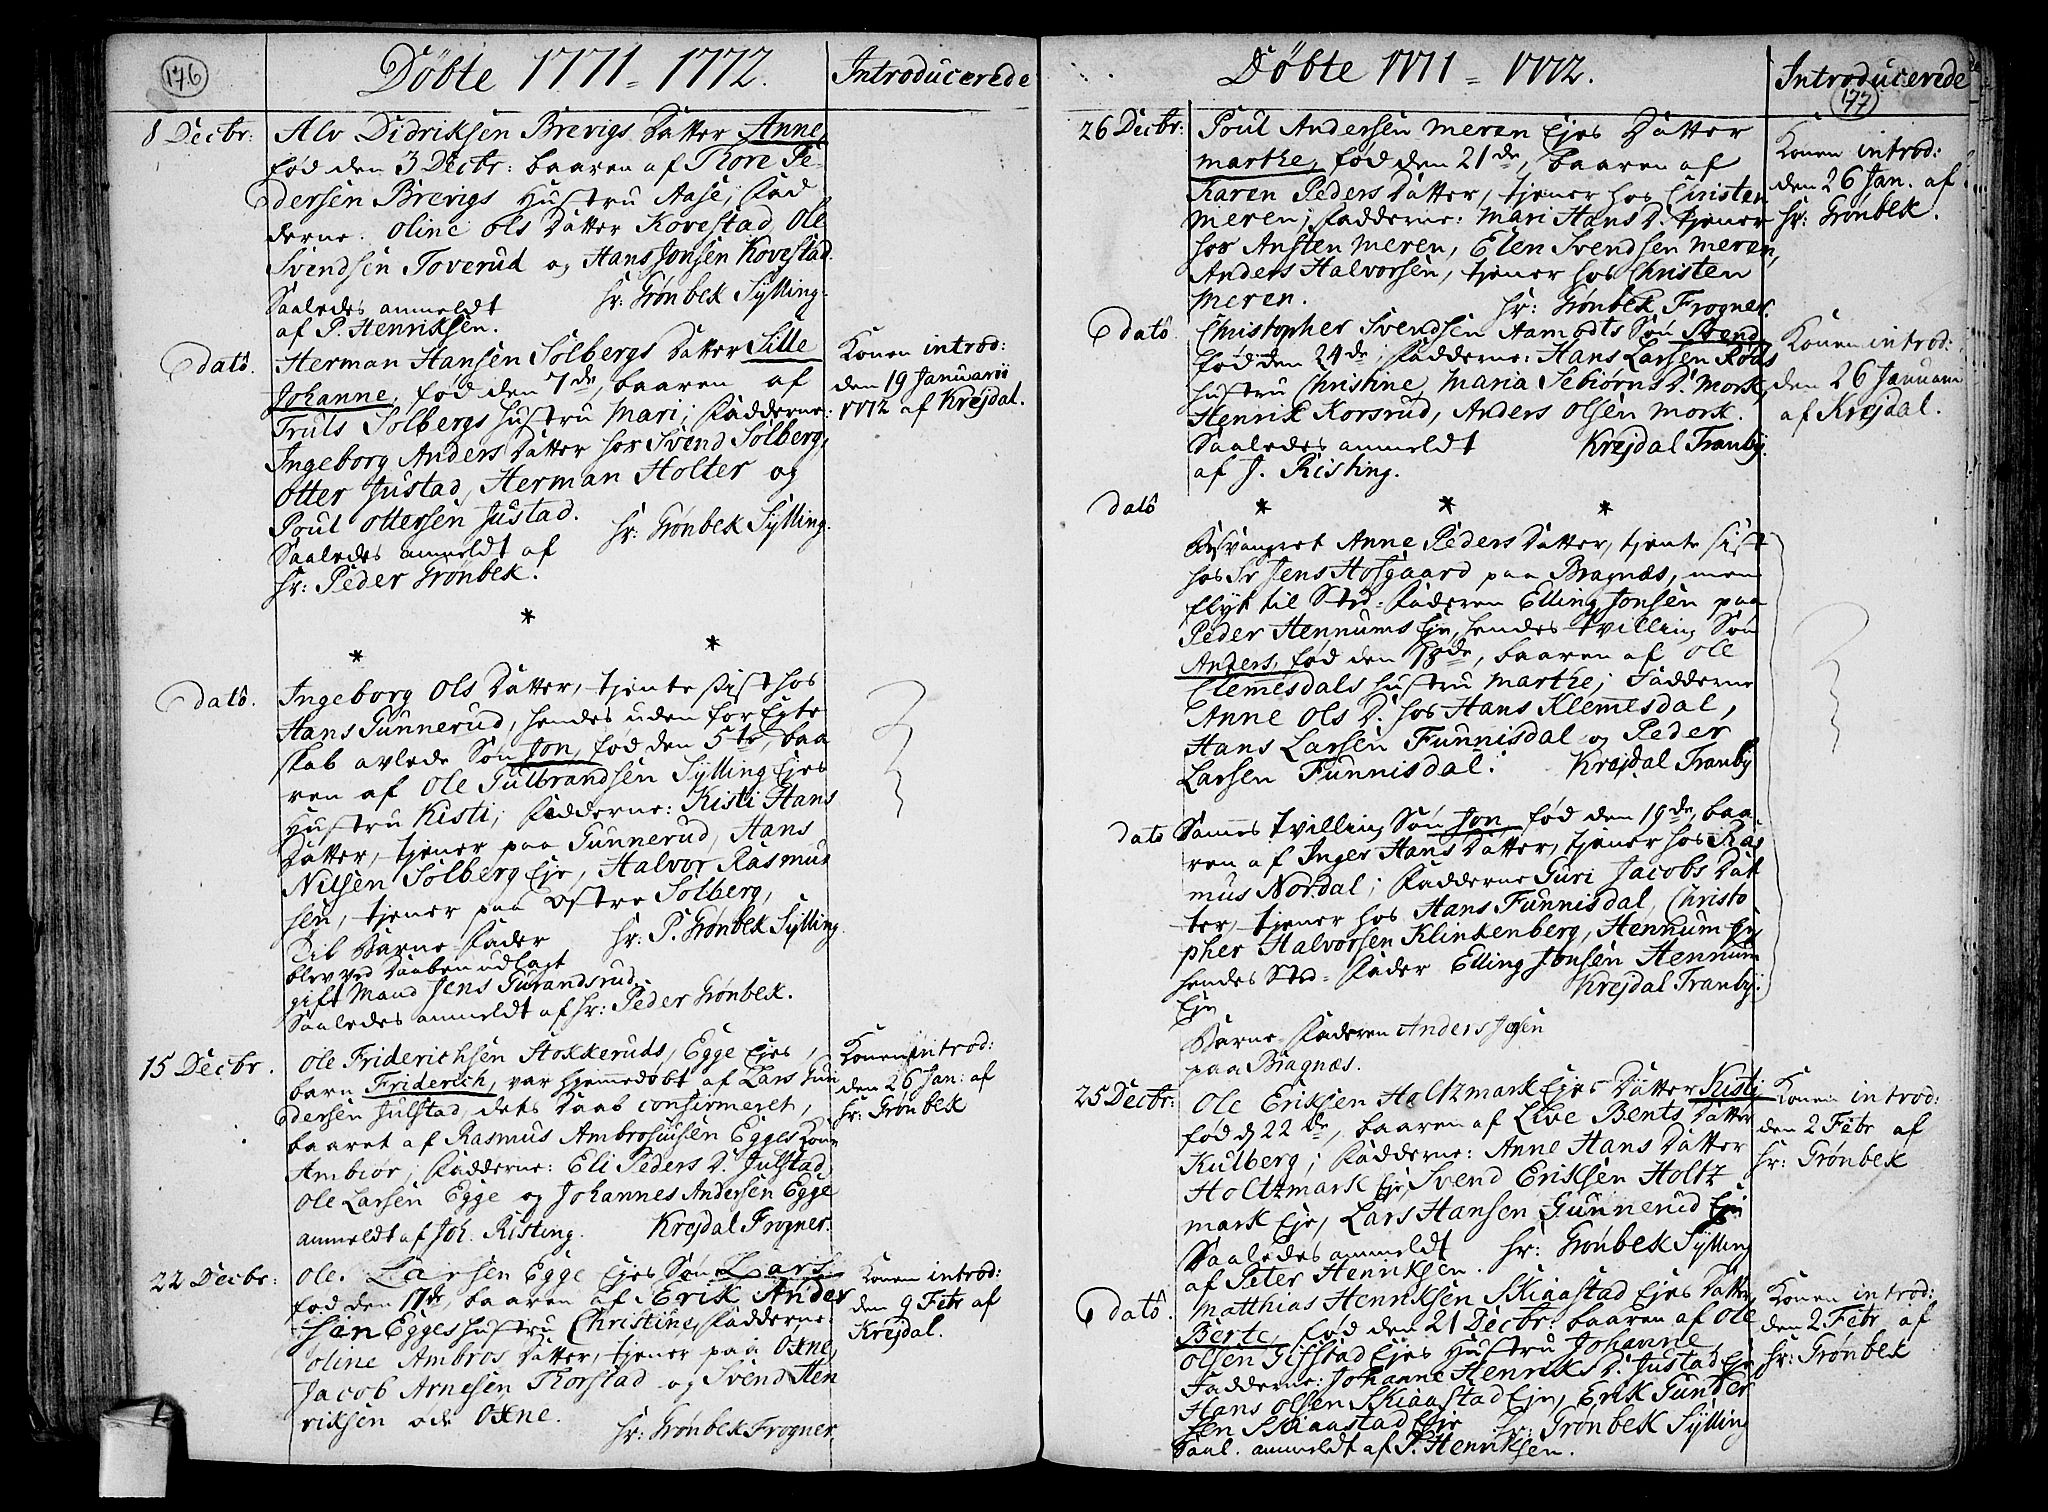 176
Döbte 1771 = 1772.
Introducerede
8 Decbr:
Alv Didriksen Brevigs Datter Anne,
fød den 3 Decbr: baaren af Thore Pe-
dersen Brevigs Hustru Aase, Fad
derne: Oline Ols Datter Kovestad, Ole
Svendsen Toverud og Hans Jonsen Kovestad.
Saaledes anmeldt
hr: Grönbek Sylling.
af P. Henriksen.
dato.
Herman Hansen Solbergs Datter Sille
Johanne, fød den 7de, baaren af
Truls Solbergs hustru Mari; Fadderne:
Ingeborg Anders Datter hos Svend Solberg,
Otter Justad, Herman Holter og
Poul Ottersen Justad.
hr: Grönbek Sylling.
Saaledes anmeldt af
hr: Peder Grönbek.
Konen introd:
den 19 Januarii
1772 af Krejdal.
*
* *
dato.
Ingeborg Ols Datter, tjente sist hos
Hans Gunnerud, hendes uden for Egte
skab avlede Søn Jon, fød den 5te, baa
ren af Ole Gulbrandsen Sylling Ejes
Hustru Kisti; Fadderne: Kisti Hans
Datter, tjener paa Gunnerud, Hans
Nilsen Solberg Eje, Halvor Rasmus
sen, tjener paa østre Solberg,
Til Barne-Fader
hr: P. Grönbek Sylling.
blev ved Daaben udlagt
gift Mand Jens Gurandsrud.
Saaledes anmeldt af hr: Peder Grönbek.
15 Decbr.
Ole Friderichsen Stokkeruds, Egge Ejes,
barn Friderich, var hjemmedøbt af Lars Gun
dersen Julstad, dets Daab confirmeret,
baaret af Rasmus Ambrosiussen Egges Kone
Ambior; Fadderne: Eli Peders D. Julstad,
Ole Larsen Egge og Johannes Andersen Egge
anmeldt af Joh. Risting.
Krejdal Frogner.
Konen introd:
den 26 Jan: af
hr: Grönbek
22 Decbr:
Ole Larsen Egge Ejes Søn Lars
fød den 17de, baaren af Erik Ander
sen Egges hustru Christine, Fadderne:
Oline Ambros Datter, tjener paa Oxne,
Jacob Arnesen Thorstad og Svend Hen
riksen ode Oxne.
hr: Grönbek Frogner.
Konen introd:
den 9 Febr af
Krejdal.
Döbte 1771 = 1772.
Introducerede
177
26 Decbr:
Poul Andersen Meren Ejes Datter
Marthe, fød den 21de, baaren af
Karen Peders Datter, tjener hos Christen
Meren; Fadderne: Mari Hans D. tjener
hos Ansten Meren, Elen Svendsen Meren,
Anders Halvorsen, tjener hos Christen
Meren.
hr: Grönbek Frogner.
Konen introd:
den 26 Jan. af
hr: Grönbek.
dato
Christopher Svendsen Aamodts Søn Svend,
fød den 24de; Fadderne: Hans Larsen Roas
hustru Christine, Maria Sebiørns D. Mork,
Henrik Korsrud, Anders Olsen Mork.
Saaledes anmeldt
Krejdal Tranby.
af J. Risting.
Konen introd:
den 26 Januarii
af Krejdal.
dato
* * *
Besvangret Anne Peders Datter, tjente sist
hos Sr Jens Hofgaard paa Bragnæs, men
flyt til Sted-Faderen Elling Jonsen paa
Peder Hennums Eje, hendes tvilling Søn
Anders, fød den 18de, baaren af Ole
Clemesdals hustru Marthe; Fadderne
Anne Ols D. hos Hans Klemesdal,
Hans Larsen Funnisdal og Peder
Larsen Funnisdal.
Krejdal Tranby
dato
Sammes tvilling Søn Jon, fød den 19de, baa-
ren af Inger Hans Datter, tjener hos Ras
mus Nordal; Fadderne Guri Jacobs Dat
ter, tjener hos Hans Funnisdal, Christo
pher Halvorsen Klinkenberg, Hennum Eje
hendes Sted-Fader Elling Jonsen Hennum
Eje
Krejdal Tranby.
Barne-Faderen Anders
paa Bragnæs.
25 Decbr:
Ole Eriksen Holtzmark Ejes Datter Kisti
fød d 22de, baaren af Live Bents Datter
Kulberg; Fadderne: Anne Hans Datter
Holtzmark Eje, Svend Eriksen Holtz
mark Eje, Lars Hansen Gunnerud Eje
Saaledes anmeldt
hr: Grönbek Sylling
af Peter Henriksen.
Konen introd:
den 2 Febr af
hr: Grönbek
dato.
Matthias Henriksen Skiaastad Ejes Datter,
Berte, fød den 21 Decbr: baaren af Ole
Olsen Gifstad Ejes Hustru Johanne,
Fadderne: Johanne Henriks D. Justad Eje
Hans Olsen Skiaastad Eje, Erik Gunder
sen Skiaastad Eje
hr: Grönbek Sylling
Saal. anmeldt af P. Henriksen.
Konen introd:
den 2 Febr af
hr: Grönbek